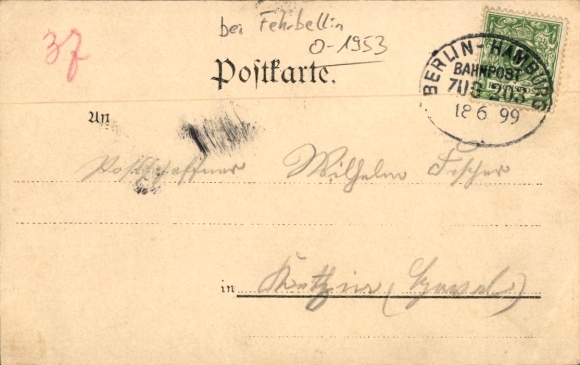 37
bei Fehrbellin
0-1953
Postkarte.
BERLIN-HAMBURG
BAHNPOST
ZUG 203
18 6 99
An
Postschaffner Wilhelm Fischer
in Ketzin (Havel)